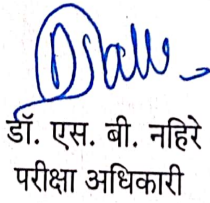 डॉ. एस. बी. नहिरे
परीक्षा अधिकारी